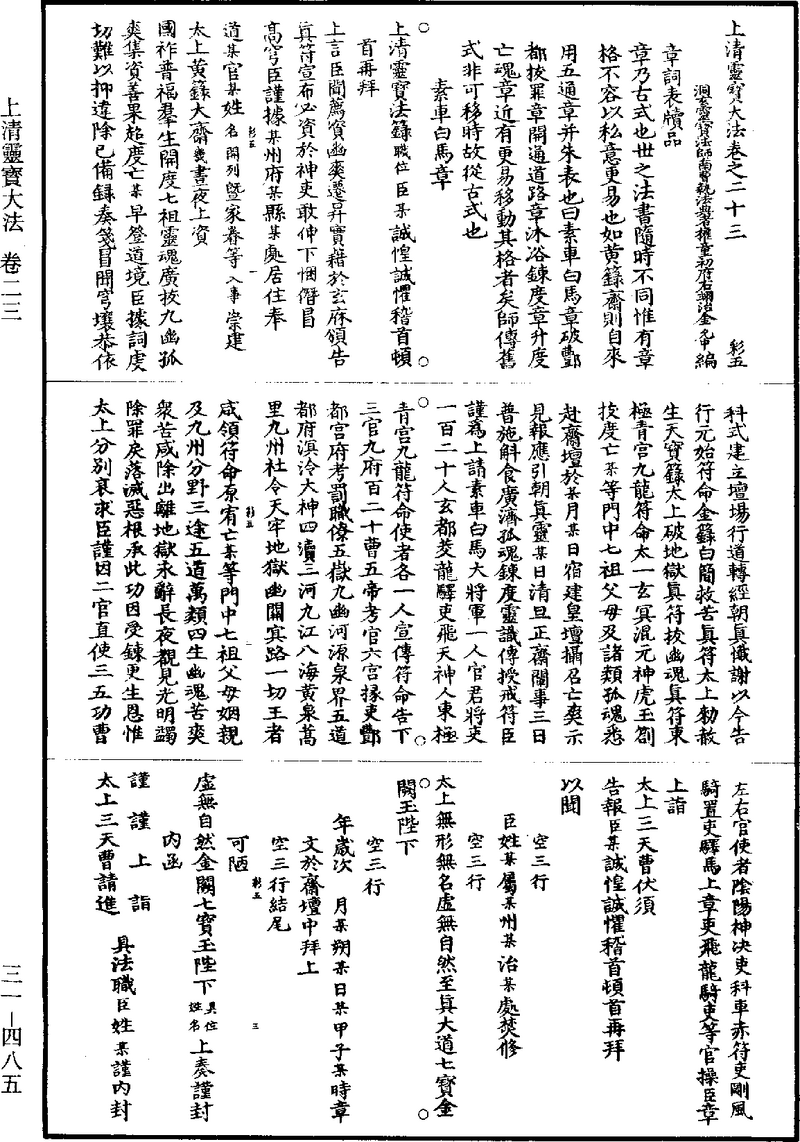 上清靈寶大法卷之二十三 彩五
洞玄靈寶法師南曹執法典者權童初府右翊治金允中編
章詞表牘品
章乃古式也世之法書隨時不同惟有章
格不容以私意更易也如黃籙齋則自來
用五通章并朱表也曰素車白馬章破酆
都拔罪章開通道路章沐浴鍊度章升度
亡魂章近有更易移動其格者矣師傳舊
式非可移時故從古式也
素車白馬章
上清靈寶法籙職位臣某誠惶誠懼稽首頓
首再拜
上言臣聞薦實幽爽遷昇實藉於玄府領告
真符宣布必資於神吏敢伸下悃僭冒
高穹臣謹據某州府某縣某處居住奉
道某官某姓名開列暨家眷等入事崇建
太上黃籙大齋幾晝夜上資
國祚普福羣生開度七祖靈魂廣拔九幽孤
爽集資善果超度亡某早登道境臣據詞虔
切難以抑違除已備録奏箋冒聞穹壤恭依
科式建立壇場行道轉經朝真懺謝以今告
行元始符命金籙白簡救苦真符太上勑赦
生天寶籙太上破地獄真符拔幽魂真符東
極青宮九龍符命太一玄冥混元神虎玉劄
拔度亡某等門中七祖父母及諸類孤魂悉
赴齋壇於某月某日宿建皇壇攝召亡爽示
見報應引朝真靈某日清旦正齋關事三日
普施斛食廣濟孤魂鍊度靈識傳授戒符臣
謹爲上請素車白馬大將軍一人官君將吏
一百二十人玄都茭龍驛吏飛天神人東極
青宮九龍符命使者各一人宣傳符命告下
三官九府百二十曹五帝考官六宮掾吏酆
都宮府考罰職僚五嶽九幽河源泉界五道
都府溟泠大神四瀆三河九江八海黃泉萬
里九州社令天牢地獄幽關冥路一切王者
咸領符命原宥亡某等門中七祖父母姻親
及九州分野三途五道萬類四生幽魂苦爽
衆苦咸除出離地獄永辭長夜觀見光明蠲
除罪戾落滅惡根承此功因受鍊更生恩惟
太上分別哀求臣謹因二官直使三五功曹
左右官使者陰陽神決吏科車赤符吏剛風
騎置吏驛馬上章吏飛龍騎吏等官操臣章
上詣
太上三天曹伏須
告報臣某誠惶誠懼稽首頓首再拜
以聞
空三行
臣姓某屬某州某治某處焚修
空三行
太上無形無名虛無自然至真大道七寶金
闕玉陛下
空三行
年歲次 月某朔某日某甲子某時章
文於齋壇中拜上
空三行結尾
可陋
虛無自然金闕七寶玉陛下具位姓名上奏謹封
內函
謹謹上詣
太上三天曹請進 具法職臣姓某謹內封
上清靈寶大法 卷二三
三一－四八五